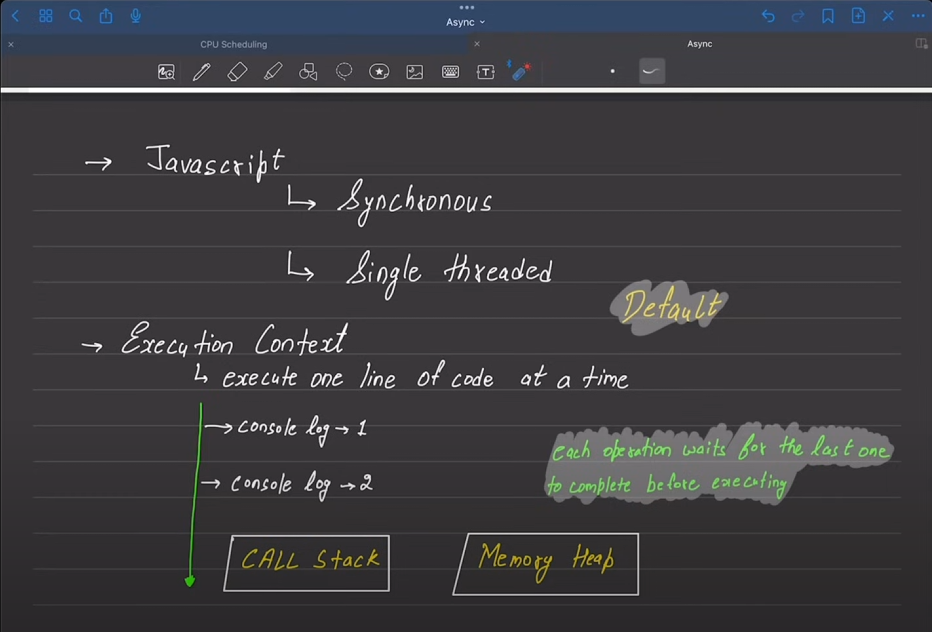 Async
CPU Scheduling
Async
→ Javascript
↳ Synchronous
↳ Single threaded
Default
→ Execution Context
↳ execute one line of code at a time
→ console log → 1
each operation waits for the last one
→ console log → 2
to complete before executing
CALL Stack
Memory Heap